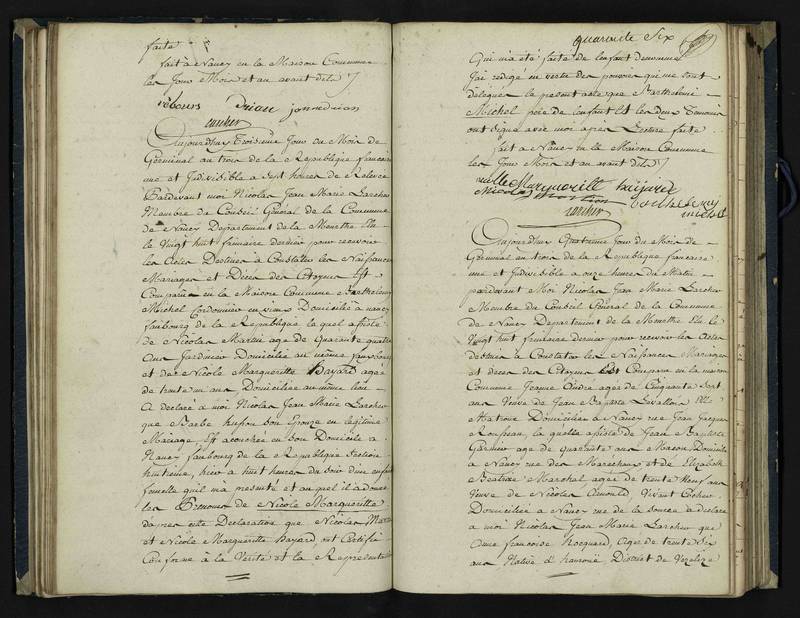 faite
fait à Nancy en la Maison Commune
les Jour Mois et an avant dits
Aujourd'huy Troisieme Jour du Mois de
Germinal an trois de la République francaise
une et Indivisible a Sept heures de Relevée
Pardevant moi Nicolas Jean Marie Larcher
Membre du Conseil Général de la Commune
de Nancy Departement de la Meurthe Elu
le Vingt huit frimaire dernier pour recevoir
les Actes Destinés à Constater les Naissances
Mariages et Décès des Citoyens Est
Comparu en la Maison Commune Barthelemy
Michel Cordonnier en vieux Domicilié à Nancy
faubourg de la République lequel assisté
de Nicolas Martin agé de Quarante quatre
ans Jardinier Domicilié au même fauxbourg
et de Nicole Margueritte Bayard agée
de trente un ans Domiciliée au même lieu
A déclaré à moi Nicolas Jean Marie Larcher
que Barbe husson son Epouze en légitime
Mariage Est acouchée en son Domicile à
Nancy faubourg de la République Section
huitieme, hier à huit heures du soir d'une enfant
femelle qu'il m'a presenté et auquel il a donné
les Prenoms de Nicole Margueritte
dapres cette Declaration que Nicolas Martin
et Nicole Marguerite Bayard ont Certifié
Conforme à la Verité et la Representation
quarante Six
Qui m'a été faite de l'enfant denommé
J'ai redigé en vertu des pouvoirs qui me sont
délégués le present acte que Barthelemi
Michel pere de l'enfant Et les deux Temoins
ont signé avec moi apres Lecture faite
fait à Nancy en la Maison Commune
les Jour Mois et an avant dits
Larcher
Aujourd'huy Quatrieme Jour du Mois de
Germinal an trois de la République francaise
une et Indivisible a onze heures du Matin
pardevant Moi Nicolas Jean Marie Larcher
Membre du Conseil Général de la Commune
de Nancy Departement de la Meurthe Elu le
Vingt huit frimaire dernier pour recevoir les Actes
destinés à Constater les Naissances Mariages
et décès des Citoyens Est Comparu en la maison
Commune Jeanne André agée de Cinquante Sept
ans Veuve de Jean Baptiste Levallois
Matrone Domiciliée à Nancy rue Jean Jacques
Rousseau, laquelle assistée de Jean Baptiste
agé de Quarante ans Macon Domicilié
à Nancy rue des Marechaux et de Elizabeth
Beatrix Marchal agée de trente Neuf ans
Veuve de Nicolas Vivant Cocher
Domiciliée à Nancy rue de la Source a déclaré
a moi Nicolas Jean Marie Larcher que
Anne francoise hocquard, Agée de trente Six
ans Native d'haroué, District de Vezelize